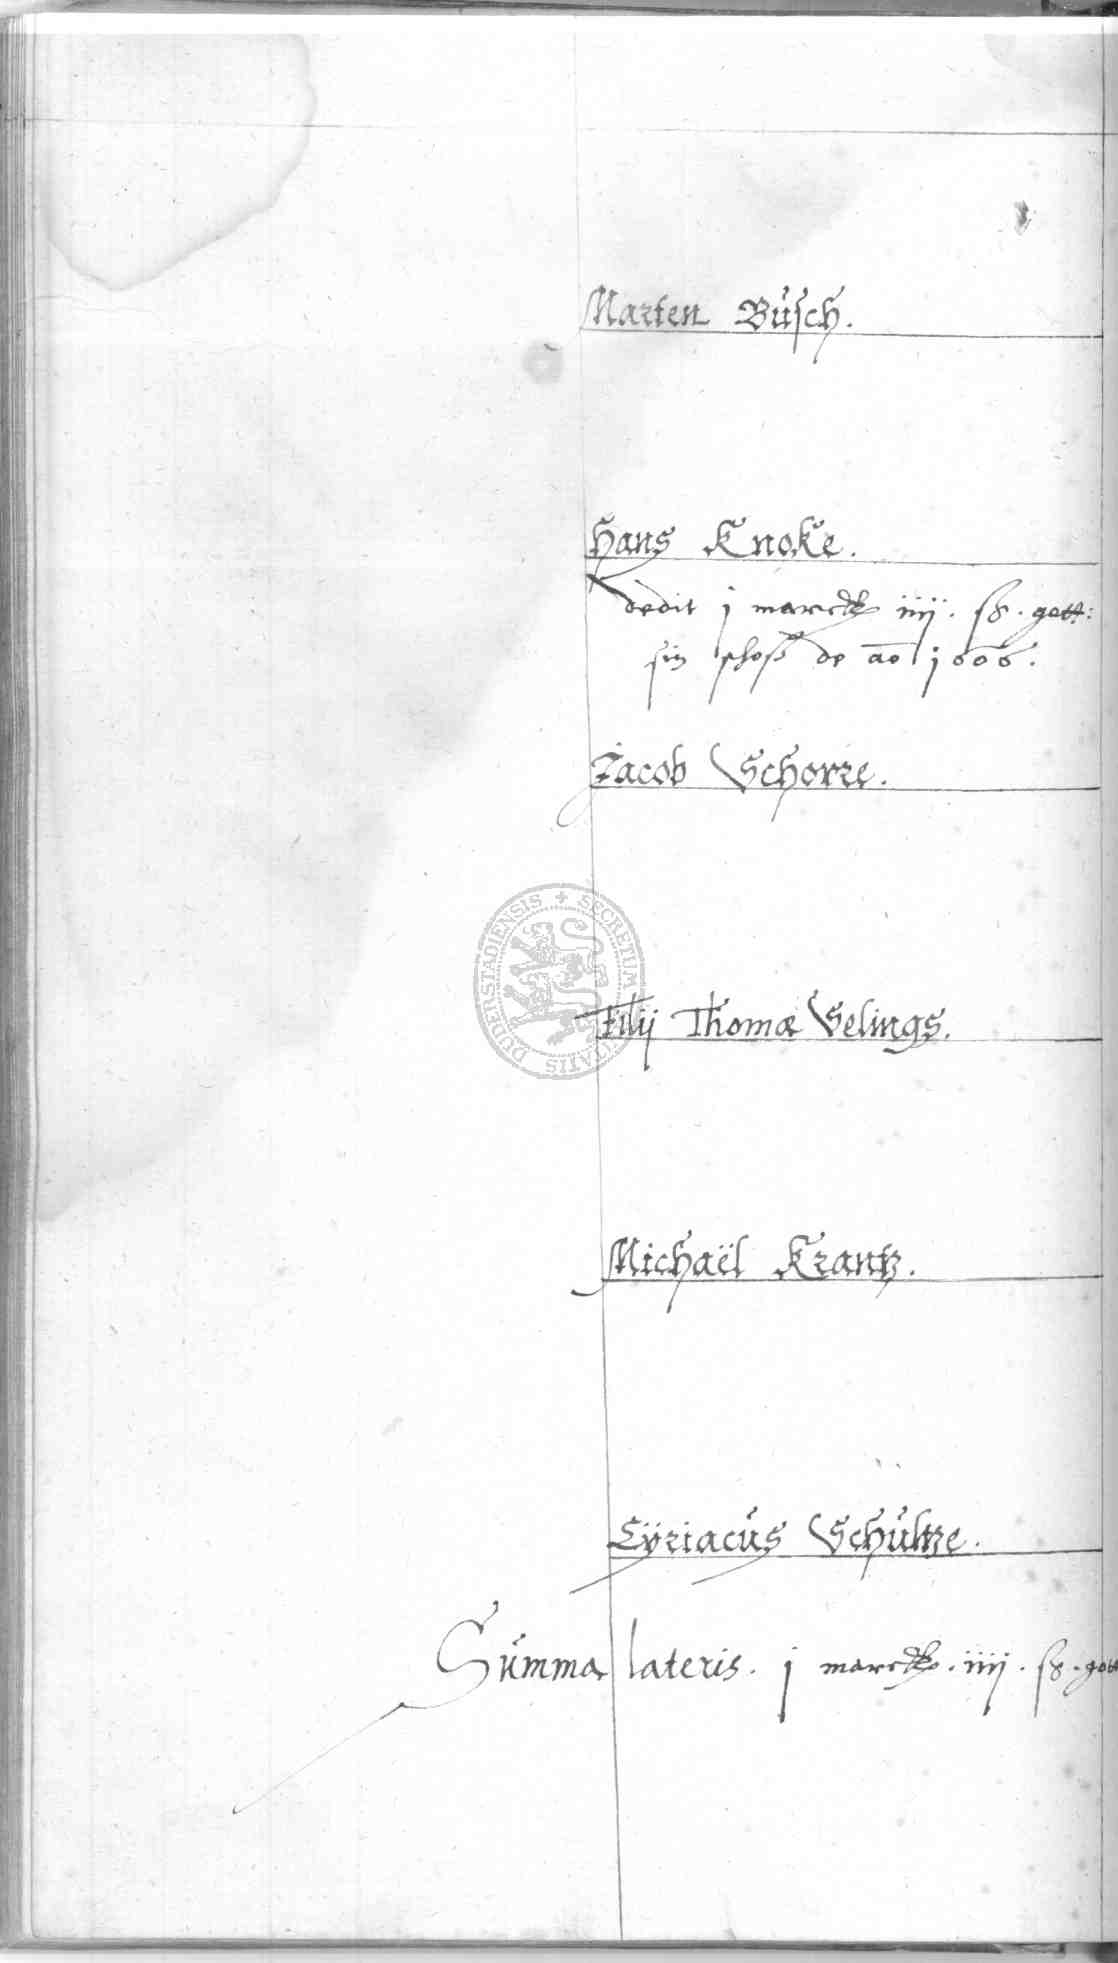 Marten Büsch.
Hans Knoke.
dedit j marck iiij. ß. gott:
sin schoß de ao 1606.
Jacob Schorre.
SECRETUM CIVITATIS DUDERSTADIENSIS
Filij Thomæ Selings.
Michaël Krantz.
Cÿriacüs Schültze.
Sümma lateris. j marck. iiij. ß. gott